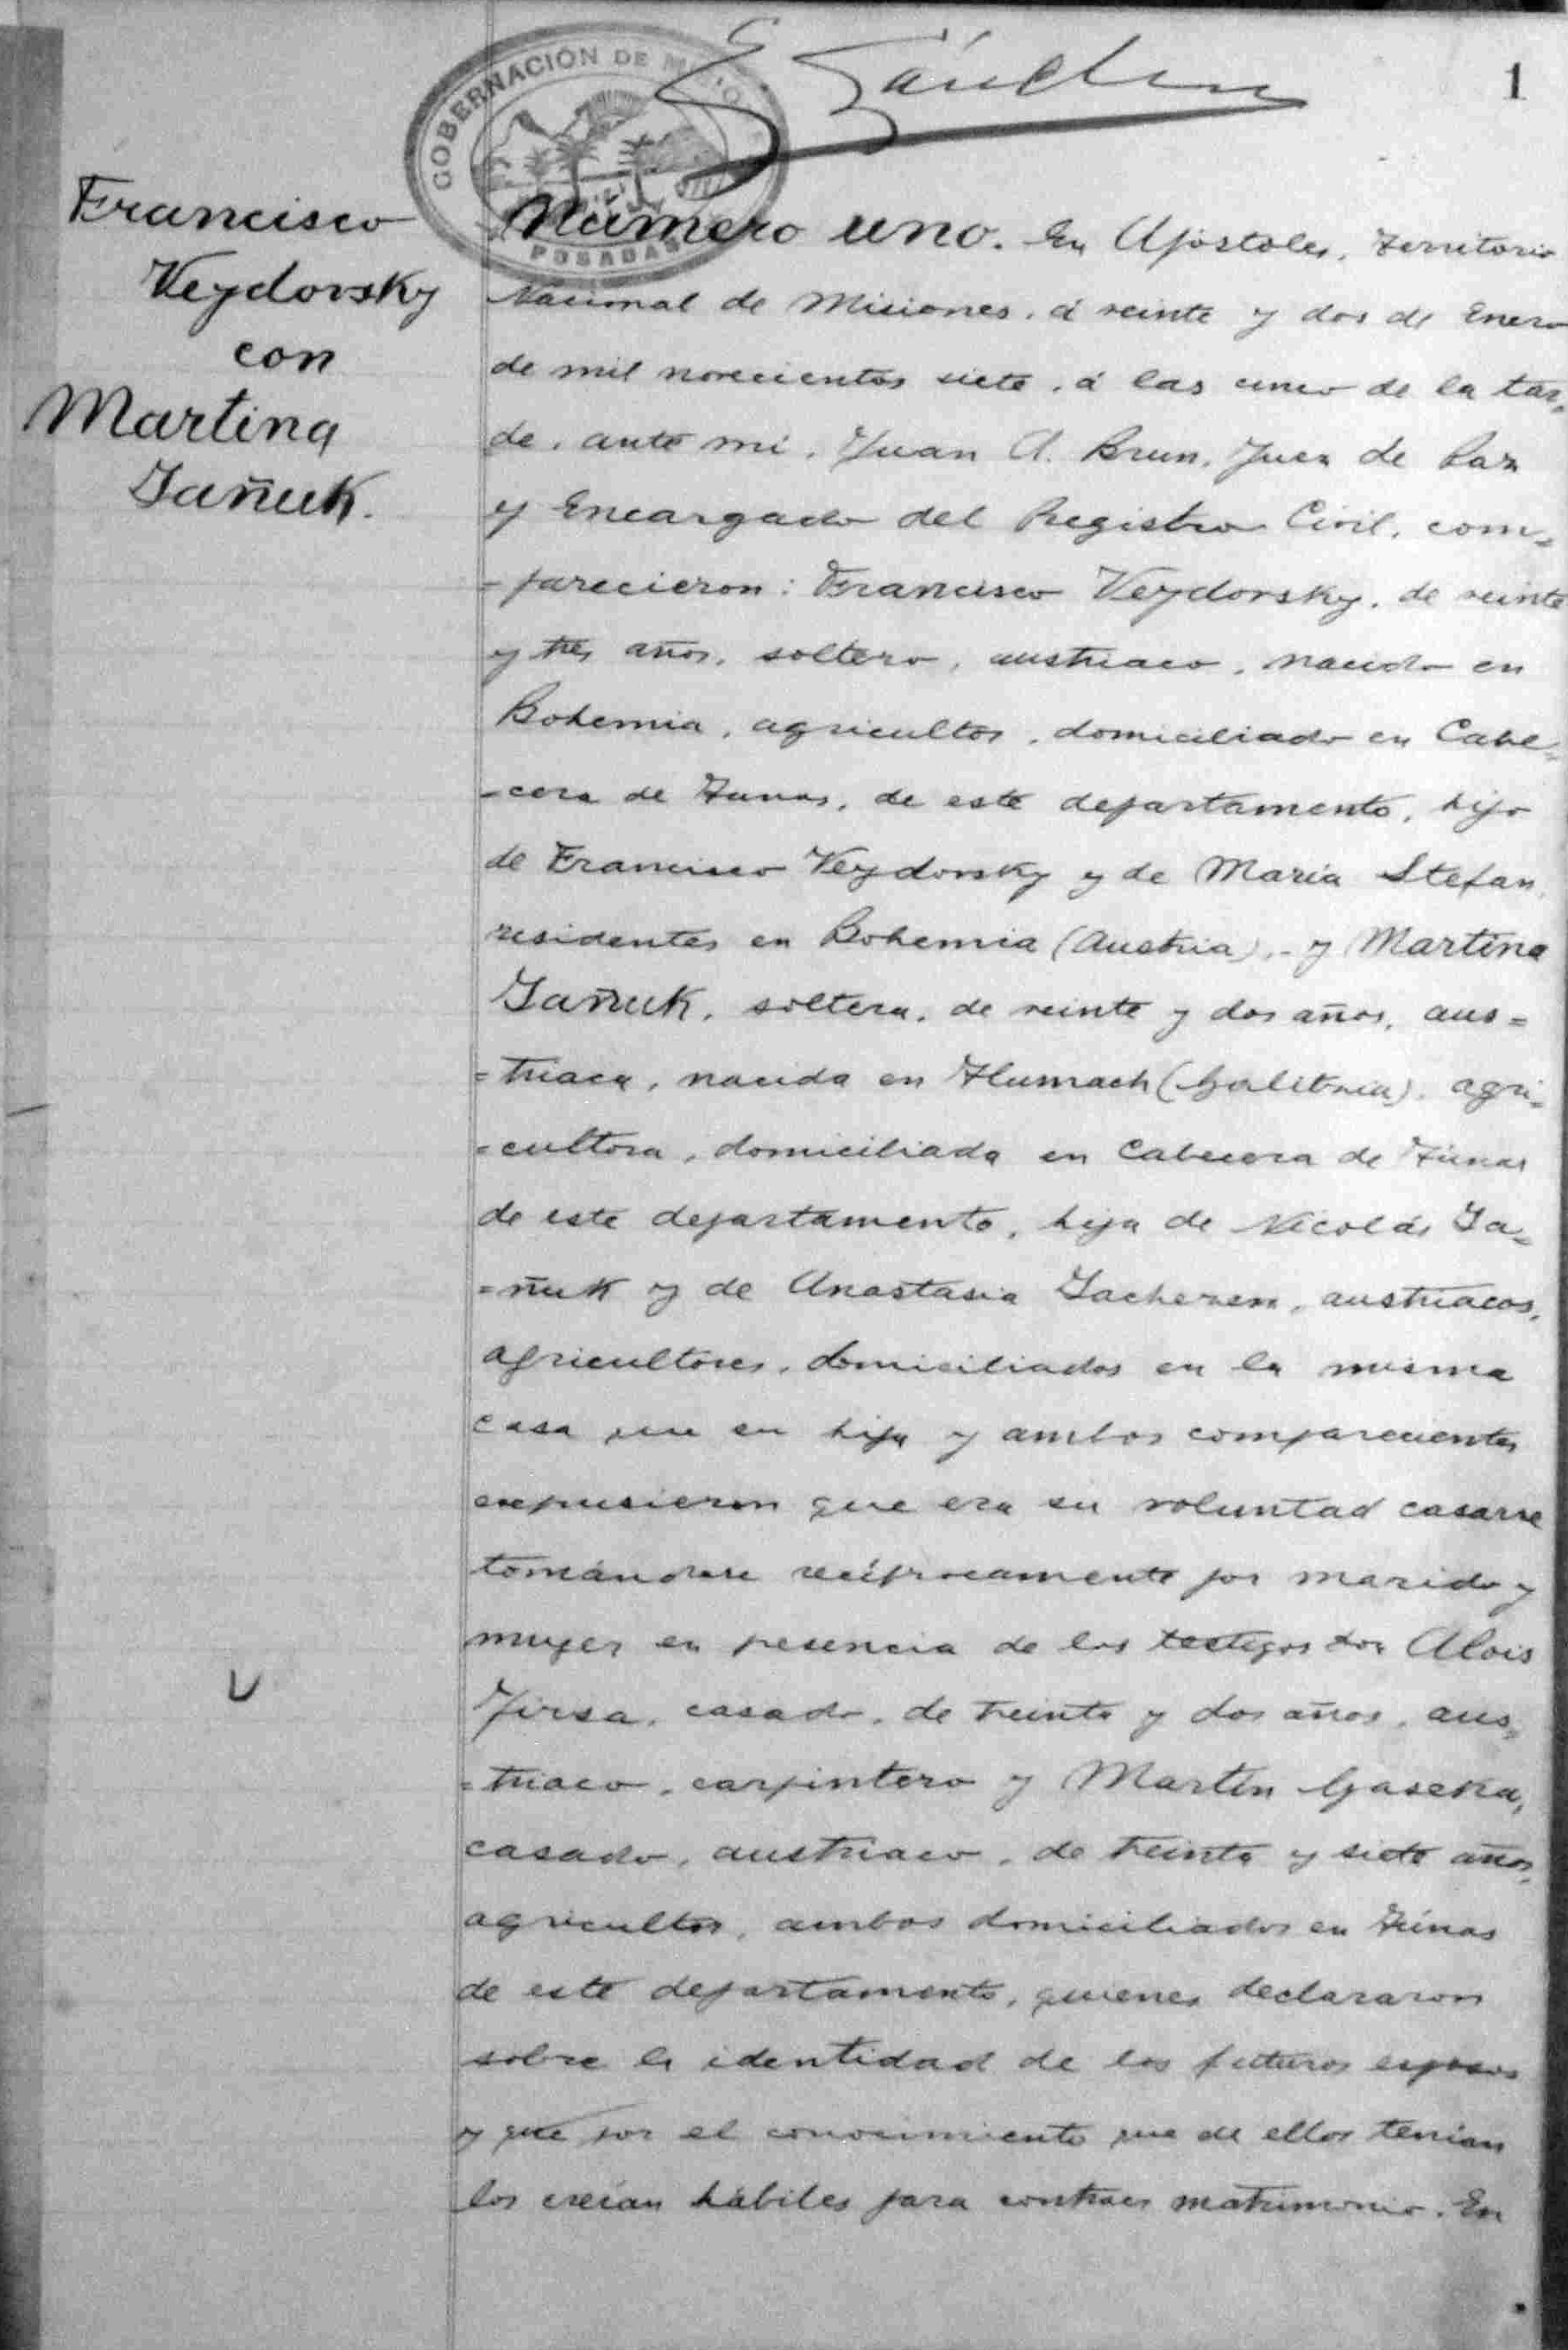 Sánchez
1
GOBERNACIÓN DE MISIONES
POSADAS
Francisco
Veydovsky
con
Martina
Iañuk.
Número uno. En Apóstoles, Territorio
Nacional de Misiones, á veinte y dos de Enero
de mil novecientos siete, á las cinco de la tar=
de, ante mí, Juan A. Brun, Juez de Paz
y Encargado del Registro Civil, com=
=parecieron: Francisco Veydovsky, de veinte
y tres años, soltero, austriaco, nacido en
Bohemia, agricultor, domiciliado en Cabe=
=cera de Tunas, de este departamento, hijo
de Francisco Veydovsky y de María Stefan,
residentes en Bohemia (Austria),- y Martina
Iañuk, soltera, de veinte y dos años, aus=
=triaca, nacida en Tlumach (Galitzia), agri=
=cultora, domiciliada en Cabecera de Túnas
de este departamento, hija de Nicolás Ia=
=ñuk y de Anastasia, austriacos,
agricultores, domiciliados en la misma
casa que su hija y ambos comparecientes
expusieron que era su voluntad casarse
tomándose recíprocamente por marido y
mujer en presencia de los testigos don Alois
Jirsa, casado, de treinta y dos años, aus=
=triaco, carpintero y Martín Gaseka,
casado, austriaco, de treinta y siete años,
agricultor, ambos domiciliados en Túnas
de este departamento, quienes declararon
sobre la identidad de los futuros esposos
y que por el conocimiento que de ellos tenían
los creían hábiles para contraer matrimonio. En